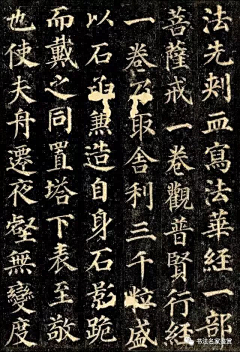 法先刺血寫法華經一部
菩薩戒一卷觀普賢行經
一卷乃取舍利三千粒盛
以石函兼造自身石影跪
而戴之同置塔下表至敬
也使夫舟遷夜壑無變度
书法名家鉴赏